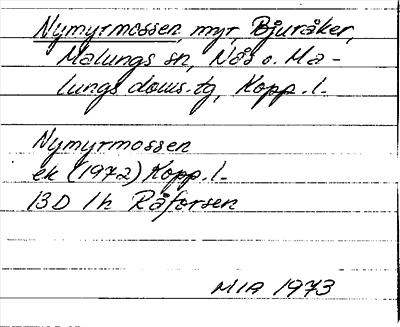 Nymyrmossen, myr, Bjuråker,
Malungs sn, Nås o. Ma-
lungs doms.tg, Kopp. l.
Nymyrmossen
ek (1972) Kopp. l.
13D 1h Råforsen
MIA 1973